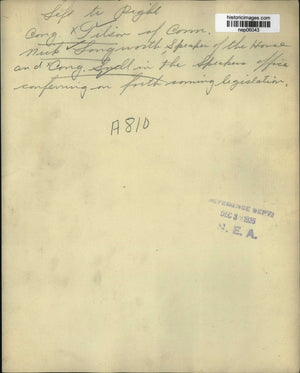 historicimages.com
nep06043
Left to Right
Cong x Tilson of Conn.
Nick Longworth Speaker of the House
and Cong. Snell in the Speakers office
conferring on forth coming legislation.
A810
REFERENCE DEPT
DEC 3 1925
N. E. A.